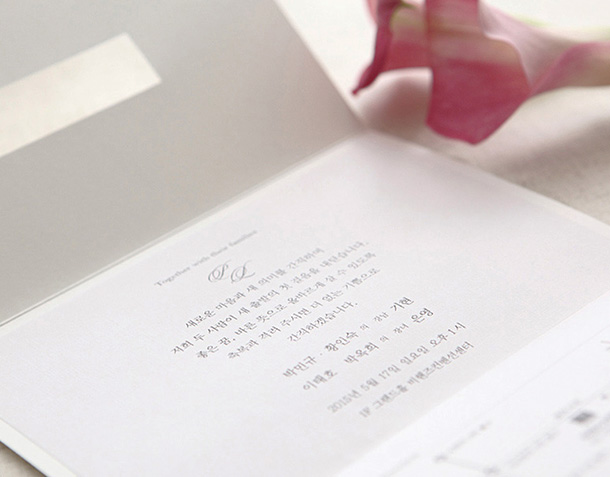 Together with their families
새로운 마음과 새 의미를 간직하며
저희 두 사람이 새 출발의 첫 걸음을 내딛습니다.
좋은 꿈, 바른 뜻으로 올바르게 살 수 있도록
축복과 격려 주시면 더 없는 기쁨으로
간직하겠습니다.
박민규 · 황인숙 의 장남 기현
이태호 · 박옥희 의 장녀 은영
2015년 5월 17일 일요일 오후 1시
1F 그랜드홀